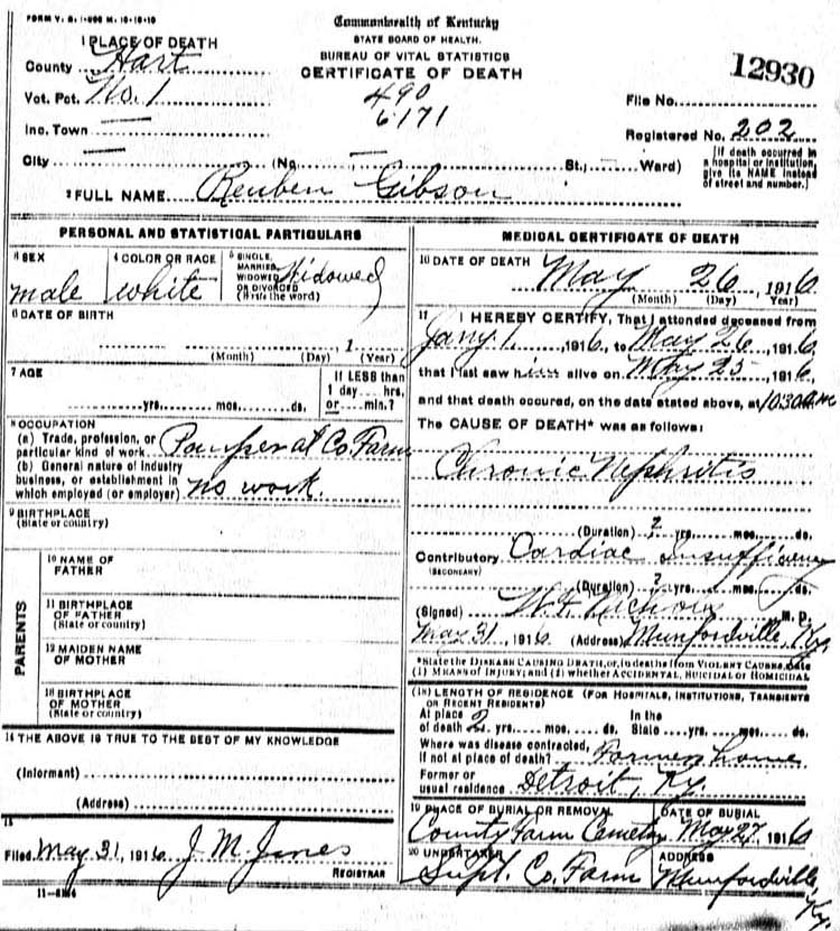 FORM V. S. 1-
Commonwealth of Kentucky
STATE BOARD OF HEALTH.
BUREAU OF VITAL STATISTICS
CERTIFICATE OF DEATH
1 PLACE OF DEATH
County Hart
Vot. Pct. No. 1
Inc. Town
City (No. St., Ward)
490
6171
12930
File No.
Registered No. 202
[If death occurred in
a hospital or institution,
give its NAME instead
of street and number.]
2 FULL NAME Reuben Gibson
PERSONAL AND STATISTICAL PARTICULARS
3 SEX
male
4 COLOR OR RACE
white
5 SINGLE,
MARRIED,
WIDOWED Widowed
OR DIVORCED
(Write the word)
6 DATE OF BIRTH
, 1
(Month) (Day) (Year)
7 AGE
yrs. mos. ds.
If LESS than
1 day hrs.
or min.?
8 OCCUPATION
(a) Trade, profession, or
particular kind of work Pauper at Co. Farm
(b) General nature of industry
business, or establishment in
which employed (or employer) no work.
9 BIRTHPLACE
(State or country)
PARENTS
10 NAME OF
FATHER
11 BIRTHPLACE
OF FATHER
(State or country)
12 MAIDEN NAME
OF MOTHER
13 BIRTHPLACE
OF MOTHER
(State or country)
14 THE ABOVE IS TRUE TO THE BEST OF MY KNOWLEDGE
(Informant)
(Address)
15
Filed May 31, 1916 J. M. Jones
REGISTRAR
MEDICAL CERTIFICATE OF DEATH
16 DATE OF DEATH
May 26, 1916
(Month) (Day) Year)
17 I HEREBY CERTIFY, That I attended deceased from
Jany. 1. 1916, to May 26, 1916,
that I last saw him alive on May 25, 1916,
and that death occured, on the date stated above, at 1030 a.m.
The CAUSE OF DEATH* was as follows:
Chronic Nephritis
(Duration) ? yrs. mos. ds.
Contributory Cardiac Insufficiency
(SECONDARY)
(Duration) ? yrs. mos. ds.
(Signed) M. D.
May 31, 1916 (Address) Munfordville, Ky.
*State the DISEASE CAUSING DEATH, or, in deaths from VIOLENT CAUSES, state
(1) MEANS OF INJURY; and (2) whether ACCIDENTAL, SUICIDAL or HOMICIDAL
(18) LENGTH OF RESIDENCE (FOR HOSPITALS, INSTITUTIONS, TRANSIENTS
OR RECENT RESIDENTS)
At place In the
of death 2 yrs. mos. ds. State yrs. mos. ds.
Where was disease contracted,
if not at place of death? Former home
Former or
usual residence Detroit, Ky.
19 PLACE OF BURIAL OR REMOVAL
County Farm Cemetry
DATE OF BURIAL
May 27, 1916
20 UNDERTAKER
Supt. Co. Farm
ADDRESS
Munfordville, Ky.